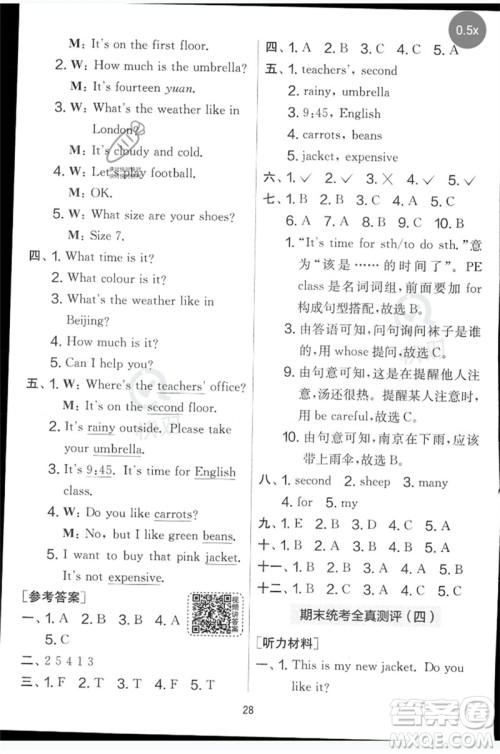 M: It's on the first floor.
2. W: How much is the umbrella?
M: It's fourteen yuan.
3. W: What's the weather like in
London?
M: It's cloudy and cold.
4. W: Let's play football.
M: OK.
5. W: What size are your shoes?
M: Size 7.
四、1. What time is it?
2. What colour is it?
3. What's the weather like in
Beijing?
4. How much is it?
5. Can I help you?
五、1. W: Where's the teachers' office?
M: It's on the second floor.
2. W: It's rainy outside. Please take your
umbrella.
3. W: It's 9:45. It's time for English
class.
4. W: Do you like carrots?
M: No, but I like green beans.
5. M: I want to buy that pink jacket.
It's not expensive.
[参考答案]
一、1. A 2. B 3. A 4. C
5. C
二、2 5 4 1 3
三、1. T 2. F 3. T 4. F 5. T
28
0.5x
四、1. A 2. B 3. B 4. C 5. A
五、1. teachers', second
2. rainy, umbrella
3. 9:45, English
4. carrots, beans
5. jacket, expensive
六、1. ✓ 2. ✓ 3. ✕ 4. ✓ 5. ✓
七、1. B 2. B 3. A 4. C 5. A
6. C 7. B 8. C 9. C 10. B
1. “It's time for sth/to do sth.”意
为“该是……的时间了”。PE
class 是名词词组,前面用 for
构成句型搭配,故选 B。
6. 由答语可知,问句询问袜子是
多少钱,故选 C。
8. 由句意可知,是在提醒他人注
意,汤还很热。提醒某人注意用
be careful,故选 C。
10. 由句意可知,南京在下雨,应该
带上雨伞,故选 B。
八、1. second 2. sheep 3. many
4. for 5. my
九、1. E 2. A 3. D 4. C 5. B
十、1. B 2. B 3. C 4. B 5. A
十一、1. F 2. T 3. F 4. T 5. F
十二、1. B 2. C 3. C 4. B 5. A
期末统考全真测评(四)
[听力材料]
一、1. This is my new jacket. Do you
like it?
答案圈
MXQE.COM